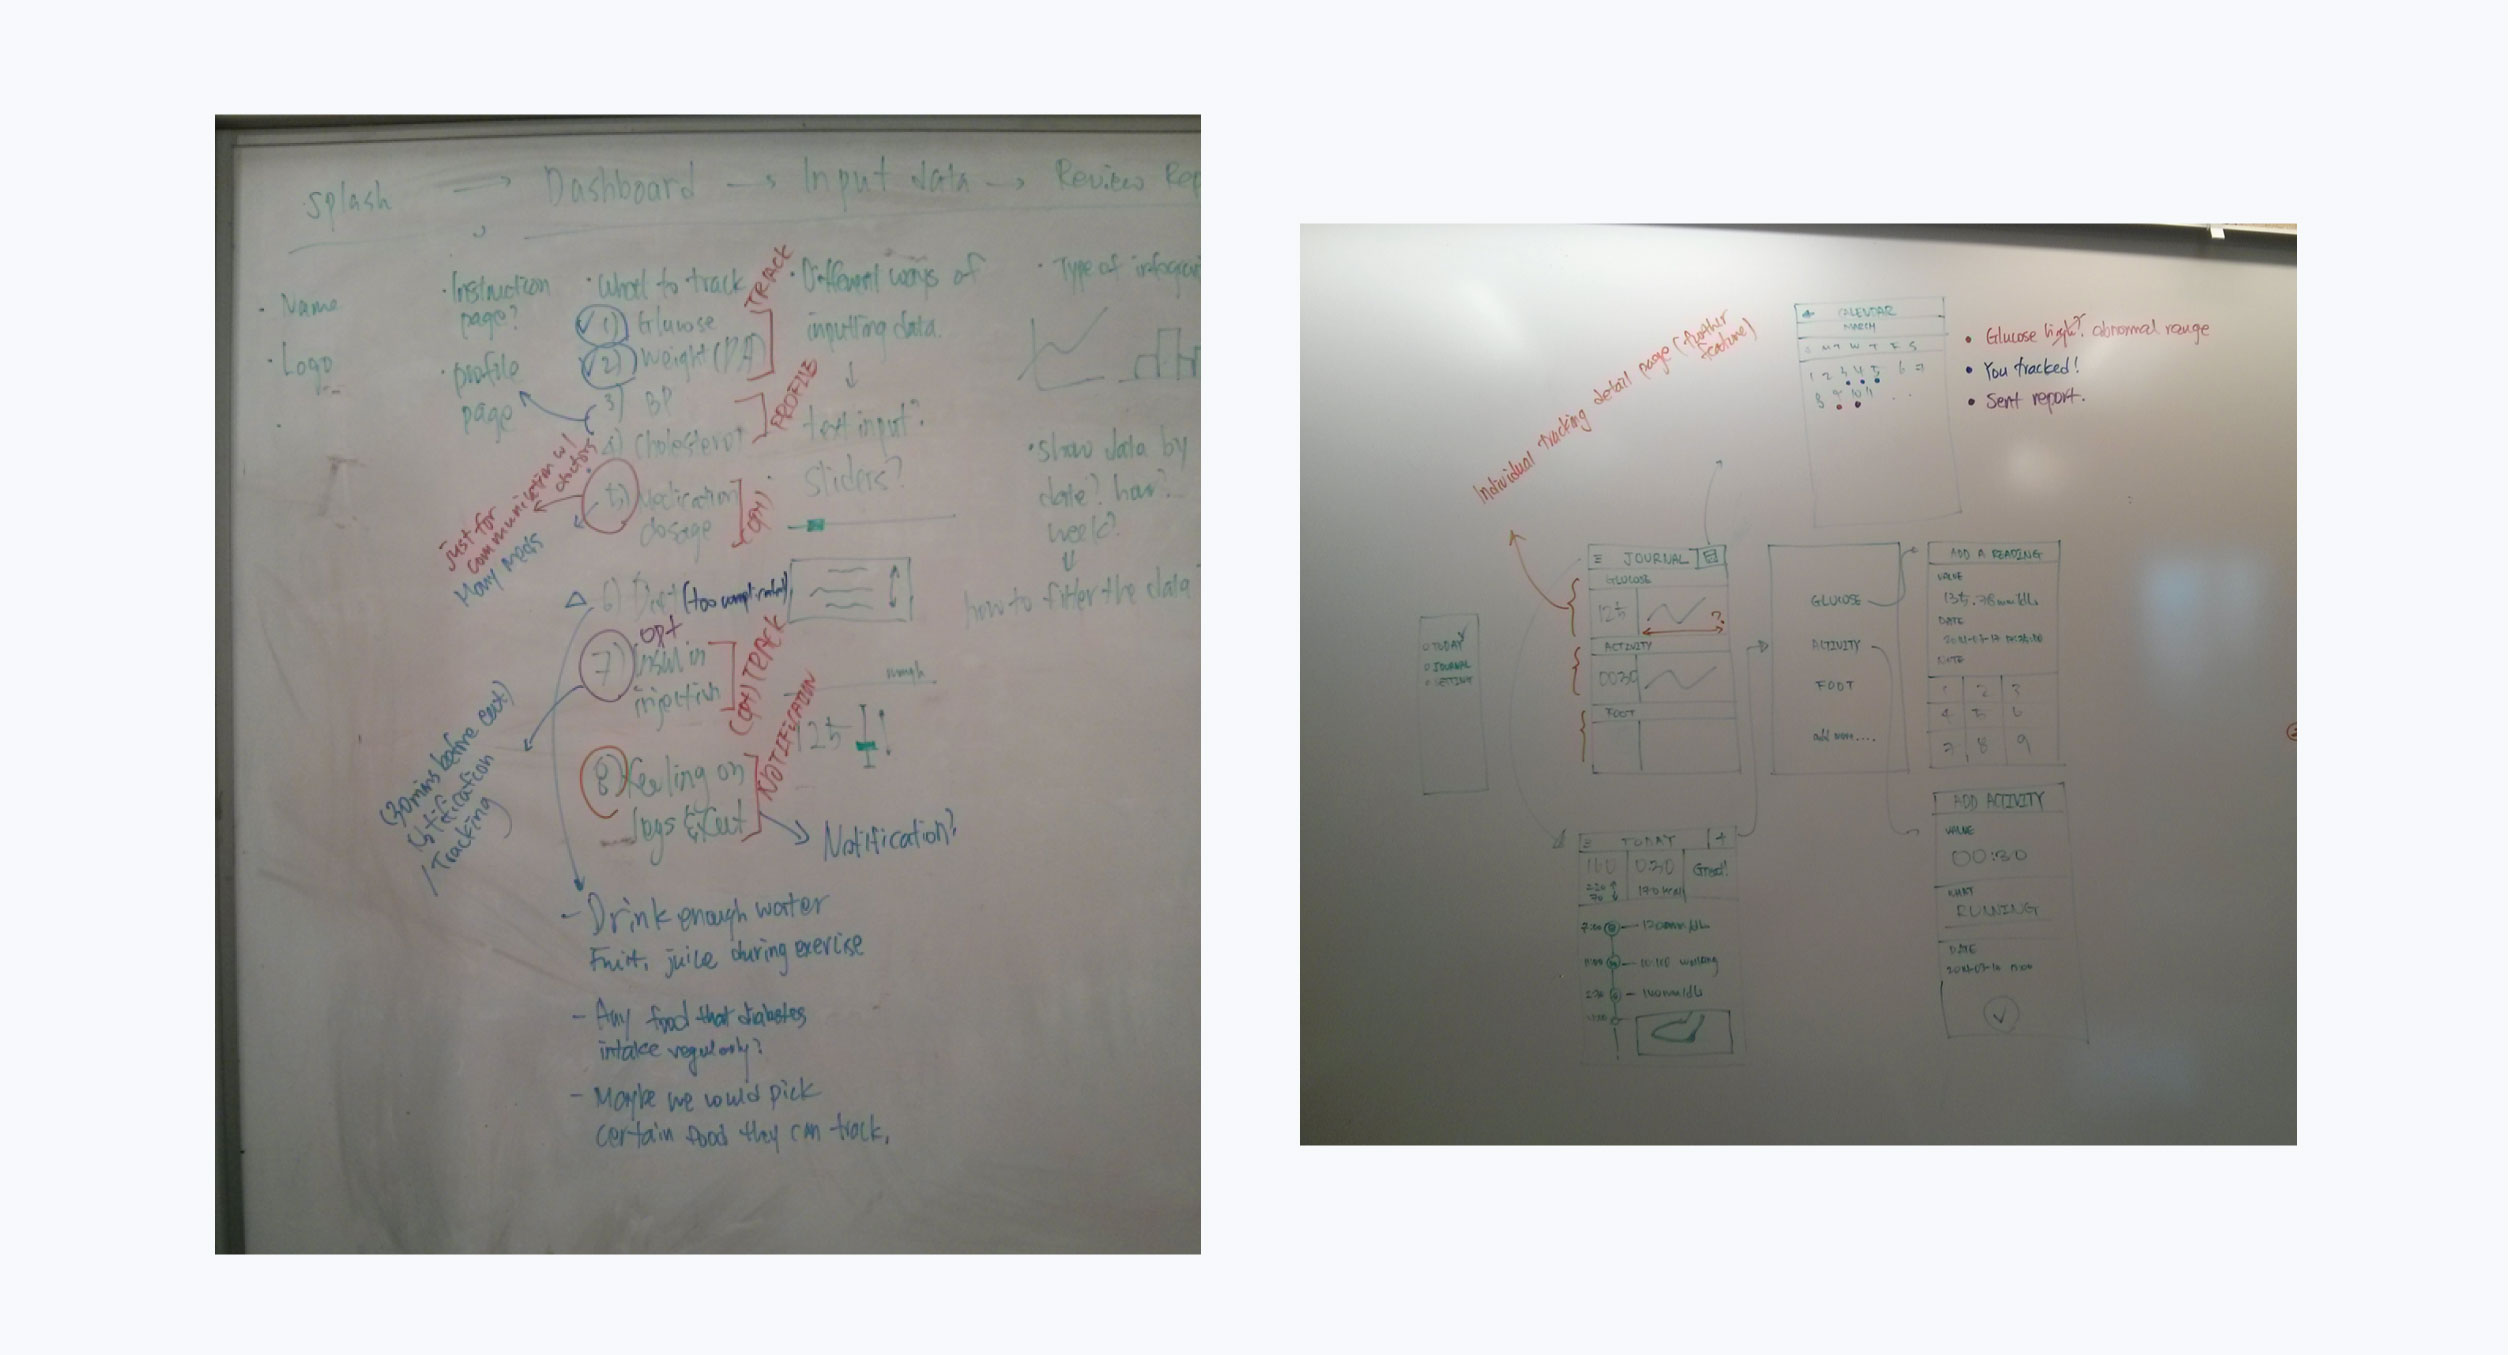 Splash → Dashboard → Input data → Review Rep
· Name
· Logo
· Instruction
page?
· profile
page
· What to track
1) Glucose
2) Weight
3) BP
4) Cholesterol
5) Medication
dosage
6) Diet (too complicated)
opt
7) Insulin
injection
8) Feeling on
legs & feet
TRACK
PROFILE
(opt)
(opt) TRACK
NOTIFICATION
just for
communication w/
doctors
Many meds
(30mins before eat)
Notification
/Tracking
· Different ways of
inputting data.
↓
text input?
sliders?
125
Notification?
· Type of infogra
· show data by
date? hour?
week?
↓
how to filter the data
- Drink enough water
Fruit, juice during exercise
- Any food that diabetes
intake regularly?
- Maybe we would pick
certain food they can track.
Individual tracking detail page (further
feature)
CALENDAR
MARCH
1 2 3 4 5 6 7
8 9 10 11
• Glucose high? abnormal range
• You tracked!
• Sent report.
TODAY
JOURNAL
SETTING
JOURNAL
GLUCOSE
125
?
ACTIVITY
0030
FOOT
GLUCOSE
ACTIVITY
FOOT
add more....
ADD A READING
VALUE
DATE
NOTE
1 2 3
4 5 6
7 8 9
TODAY +
160 0:30 Great!
220 ↑
70 ↓
170 kcal
7:00
120mm/dL
walking
140mm/dL
ADD ACTIVITY
VALUE
00:30
WHAT
RUNNING
DATE